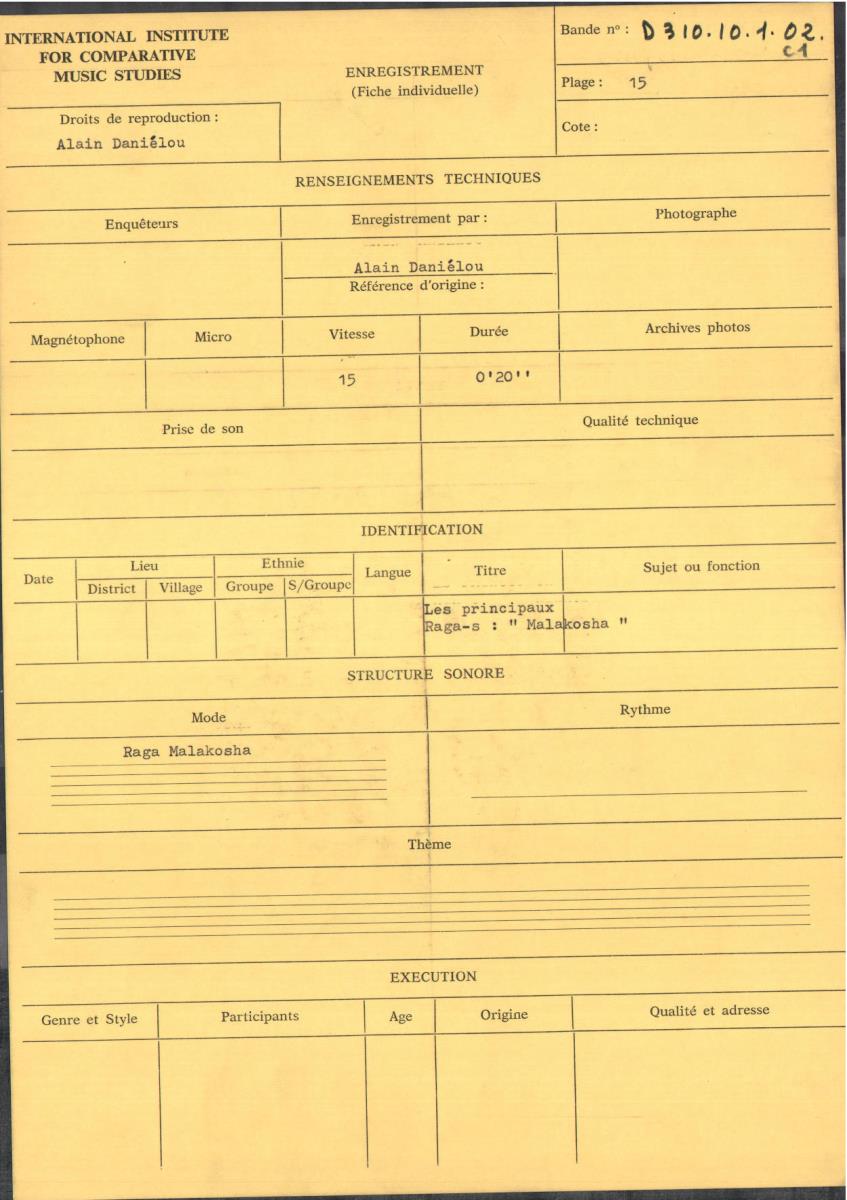 INTERNATIONAL INSTITUTE
FOR COMPARATIVE
MUSIC STUDIES
ENREGISTREMENT
(Fiche individuelle)
Bande nº : D 310.10.1.02.
C1
Plage : 15
Cote :
Droits de reproduction :
Alain Daniélou
RENSEIGNEMENTS TECHNIQUES
Enquêteurs
Enregistrement par :
Photographe
Alain Daniélou
Référence d'origine :
Magnétophone
Micro
Vitesse
Durée
Archives photos
15
0'20''
Prise de son
Qualité technique
IDENTIFICATION
Date
Lieu
Ethnie
Langue
Titre
Sujet ou fonction
District
Village
Groupe
S/Groupe
Les principaux
Raga-s : " Malakosha "
STRUCTURE SONORE
Mode
Rythme
Raga Malakosha
Thème
EXECUTION
Genre et Style
Participants
Age
Origine
Qualité et adresse